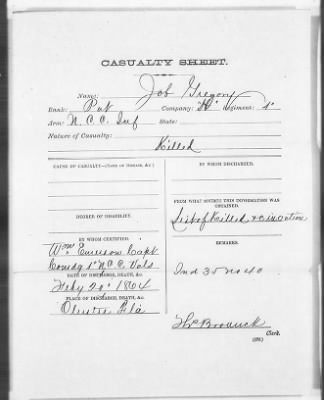 CASUALTY SHEET.
Name: Job Gregory
Rank: Pvt Company: "D" Regiment: 1st
Arm: N.C.C. Inf State:
Nature of Casualty:
Killed
CAUSE OF CASUALTY—(NAME OF DISEASE, &c.)
DEGREE OF DISABILITY.
BY WHOM CERTIFIED.
Wm Emerson Capt
Comdg 1st N.C.C. Vols
DATE OF DISCHARGE, DEATH, &c.
Feby 20th 1864
PLACE OF DISCHARGE, DEATH, &c.
Olustee Fla
BY WHOM DISCHARGED.
FROM WHAT SOURCE THIS INFORMATION WAS OBTAINED.
List of Killed &c in action
REMARKS.
Ind 35 no 40
Clerk.